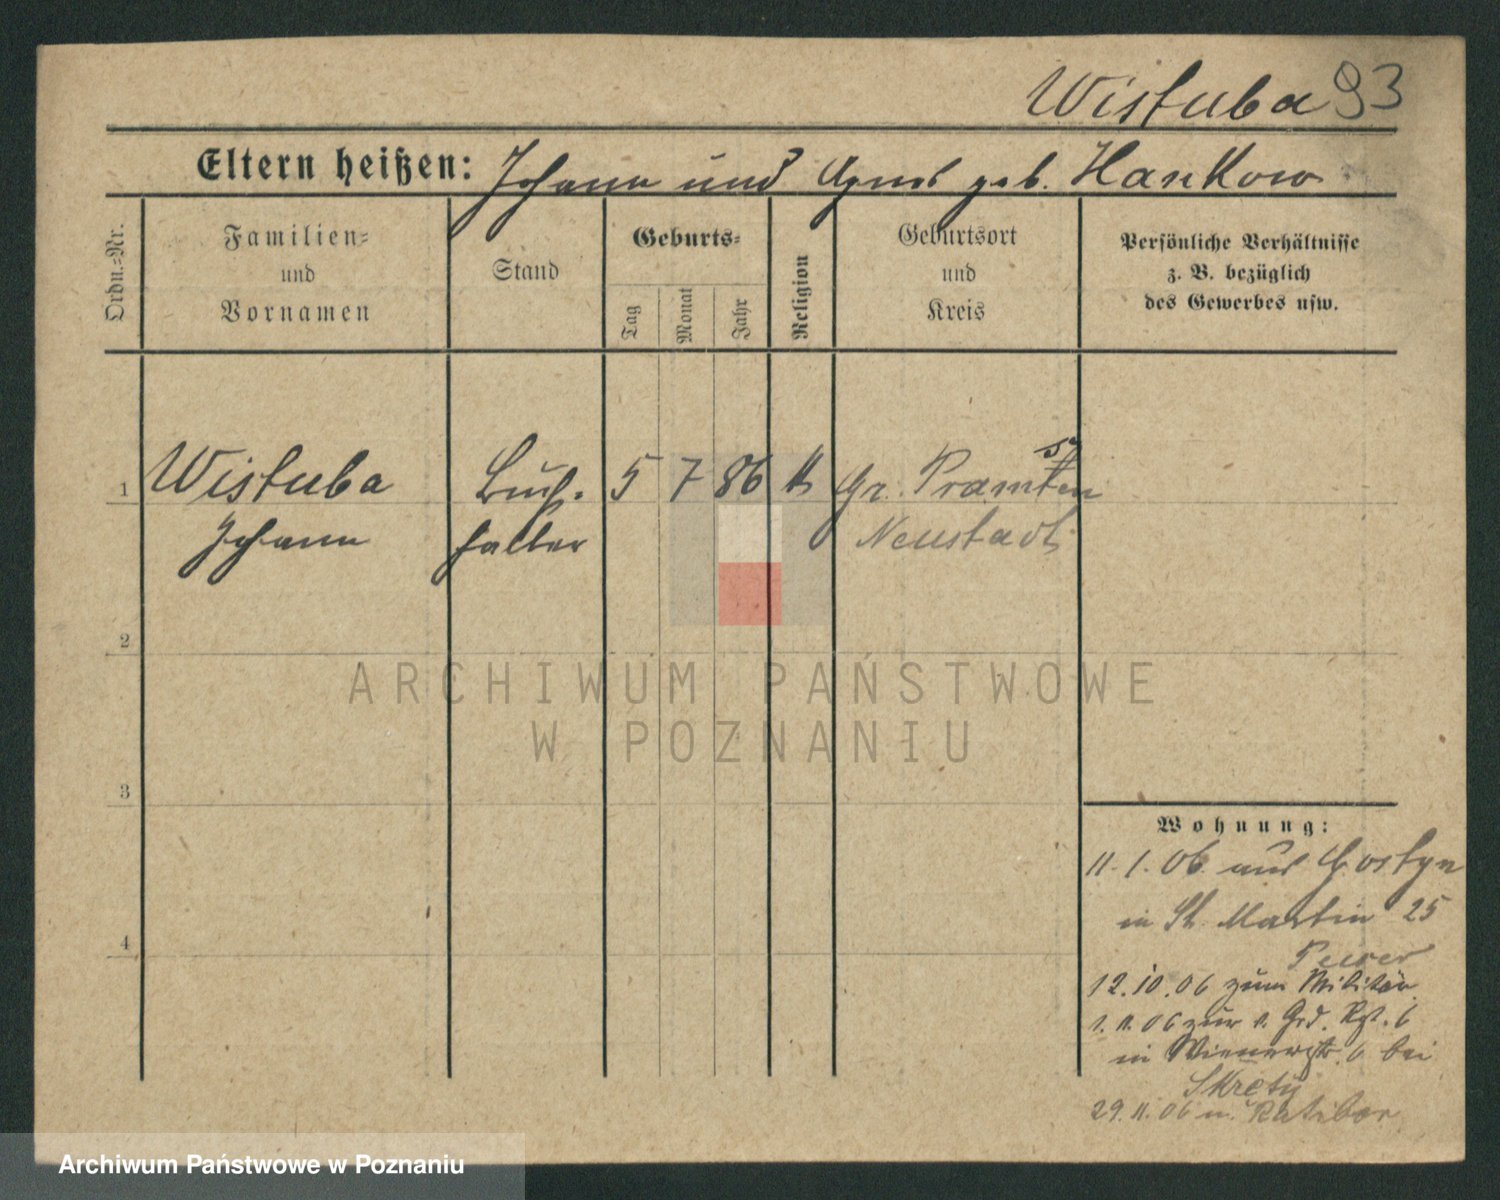 Wistuba 93
Eltern heißen: Johann und Agnes geb. Hankow
Ordn.-Nr.
Familien-
und
Vornamen
Stand
Geburts-
Tag
Monat
Jahr
Religion
Geburtsort
und
Kreis
Persönliche Verhältnisse
z. B. bezüglich
des Gewerbes usw.
1 Wistuba Buch- 5 7 86 k Gr. Pramsen
Johann halter Neustadt
2
3
4
Wohnung:
11.1.06 aus Gostyn
in St. Martin 25
12.10.06 zum Militär
in Wienerstr. 6 bei
Skrety
29.11.06 n. Ratibor
ARCHIWUM PAŃSTWOWE
W POZNANIU
Archiwum Państwowe w Poznaniu